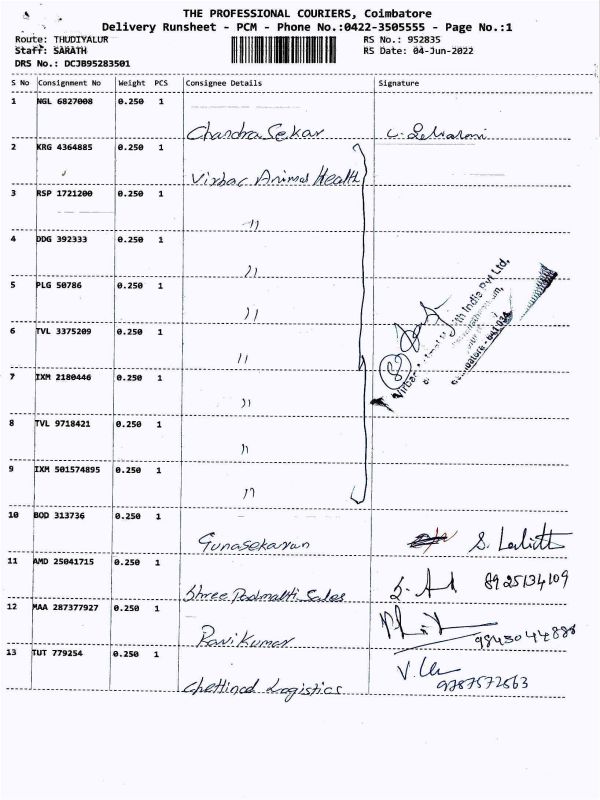 THE PROFESSIONAL COURIERS, Coimbatore
Delivery Runsheet - PCM - Phone No.:0422-3505555 - Page No.:1
Route: THUDIYALUR RS No.: 952835
Staff: SARATH RS Date: 04-Jun-2022
DRS No.: DCJB95283501
S No Consignment No Weight PCS Consignee Details Signature
1 NGL 6827008 0.250 1
Chandra Sekar
2 KRG 4364885 0.250 1
Virbac Animal Health
3 RSP 1721200 0.250 1
"
4 DDG 392333 0.250 1
"
5 PLG 50786 0.250 1
"
6 TVL 3375209 0.250 1
"
7 IXM 2180446 0.250 1
"
8 TVL 9718421 0.250 1
"
9 IXM 501574895 0.250 1
"
Virbac Animal Health India Pvt Ltd,
Coimbatore - 641 034
10 BOD 313736 0.250 1
Gunasekaran
11 AMD 25041715 0.250 1
Shree Padmakti Sales 8925134109
12 MAA 287377927 0.250 1
Ravi Kumar 9843044888
13 TUT 779254 0.250 1
Chettinad Logistics 9787572563